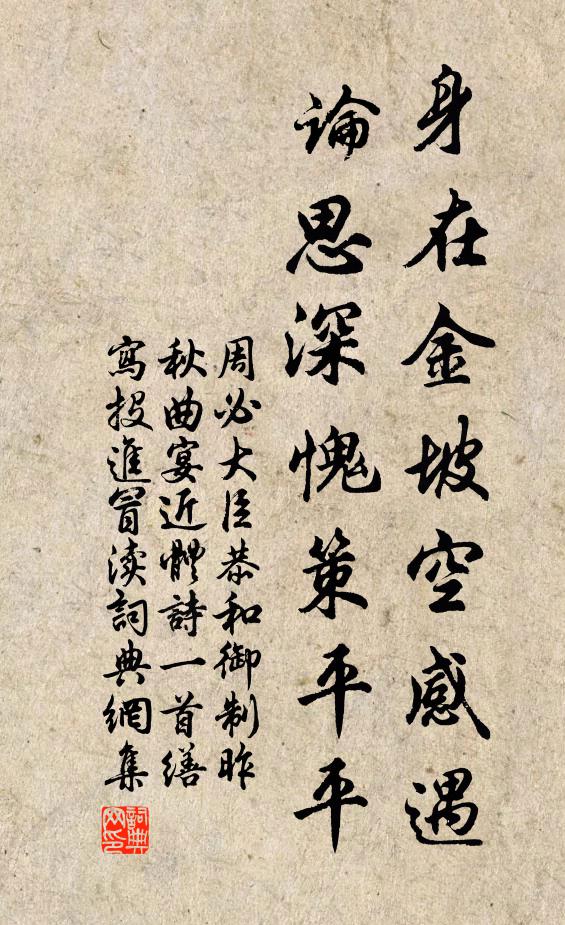 身在金坡空感遇
論思深愧策平平
周必大臣恭和御制昨
秋曲宴近體詩一首繕
寫投進冒渎詞典網集
詞典
网印